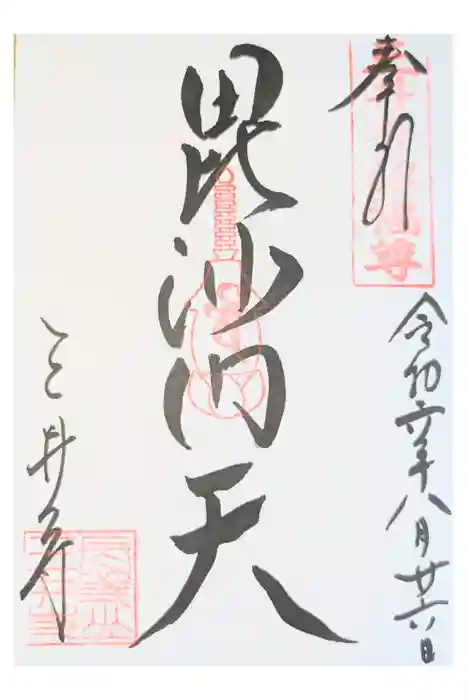 奉拝
令和六年八月廿六日
毘沙門天
三井寺